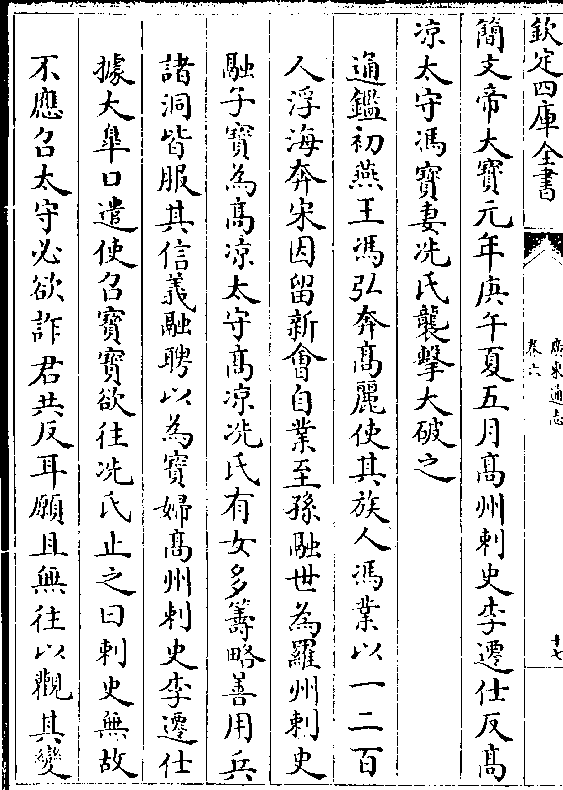 欽定四庫全書
廣東通志
卷六
十七
簡文帝大寶元年庚午夏五月髙州刺史李遷仕反髙
凉太守馮寶妻冼氏襲擊大破之
通鑑初燕王馮弘奔髙麗使其族人馮業以一二百
人浮海奔宋因留新會自業至孫融世為羅州刺史
融子寶為髙凉太守髙凉冼氏有女多籌略善用兵
諸洞皆服其信義融聘以為寶婦髙州刺史李遷仕
據大臯口遣使召寶寶欲往冼氏止之曰刺史無故
不應召太守必欲詐君共反耳願且無往以觀其變